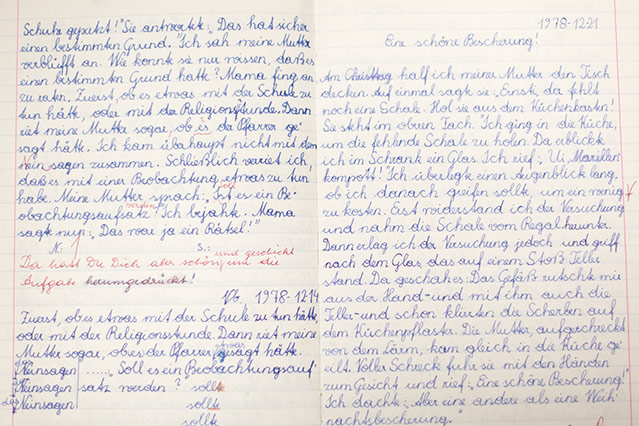 Schuhe geputzt!" Sie antwortete: „Das hat sicher
einen bestimmten Grund." Ich sah meine Mutter
verblüfft an. Wie konnte sie nur wissen, daß es
einen bestimmten Grund hatte? Mama fing an
zu raten. Zuerst, ob es etwas mit der Schule zu
tun hätte, oder mit der Religionsstunde. Dann
riet meine Mutter sogar, ob es der Pfarrer ge-
sagt hätte. Ich kam überhaupt nicht mit dem
nein sagen zusammen. Schließlich verriet ich,
daß es mit einer Beobachtung etwas zu tun
habe. Meine Mutter sprach: „Ist es ein Be-
obachtungsaufsatz?" Ich bejahte. Mama
sagte nur: „Das war ja ein Rätsel!"
N: 1 S:
Da hast Du Dich aber schön und geschickt um die
Aufgabe herumgedrückt!
Vb. 1978-12-14
Zuerst, ob es etwas mit der Schule zu tun hätte,
oder mit der Religionsstunde. Dann riet meine
Mutter sogar, ob es der Pfarrer gesagt hätte.
etwas
Neinsagen ......, Soll es ein Beobachtungsauf-
Neinsagen satz werden? sollte
Neinsagen sollte
sollte
1978-12-21
Eine schöne Bescherung!
Am Christtag half ich meiner Mutter den Tisch
decken. Auf einmal sagte sie: „Ernst, da fehlt
noch eine Schale. Hol sie aus dem Küchenkasten!
Sie steht im obren Fach." Ich ging in die Küche,
um die fehlende Schale zu holen. Da erblickte
ich im Schrank ein Glas. Ich rief: „Ui, Marillen-
kompott!" Ich überlegte einen Augenblick lang,
ob ich danach greifen sollte, um ein wenig
zu kosten. Erst widerstand ich der Versuchung
und nahm die Schale vom Regal herunter.
Dann erlag ich der Versuchung jedoch und griff
nach dem Glas, das auf einem Stoß Teller
stand. Da geschah es. Das Gefäß rutschte mir
aus der Hand - und mit ihm auch die
Teller - und schon klirrten die Scherben auf
dem Küchenpflaster. Die Mutter, aufgeschreckt
von dem Lärm, kam gleich in die Küche ge-
eilt. Voller Schreck fuhr sie mit den Händen
zum Gesicht und rief: „Eine schöne Bescherung!"
Ich dachte: „Aber eine andere als eine Weih-
nachtsbescherung."